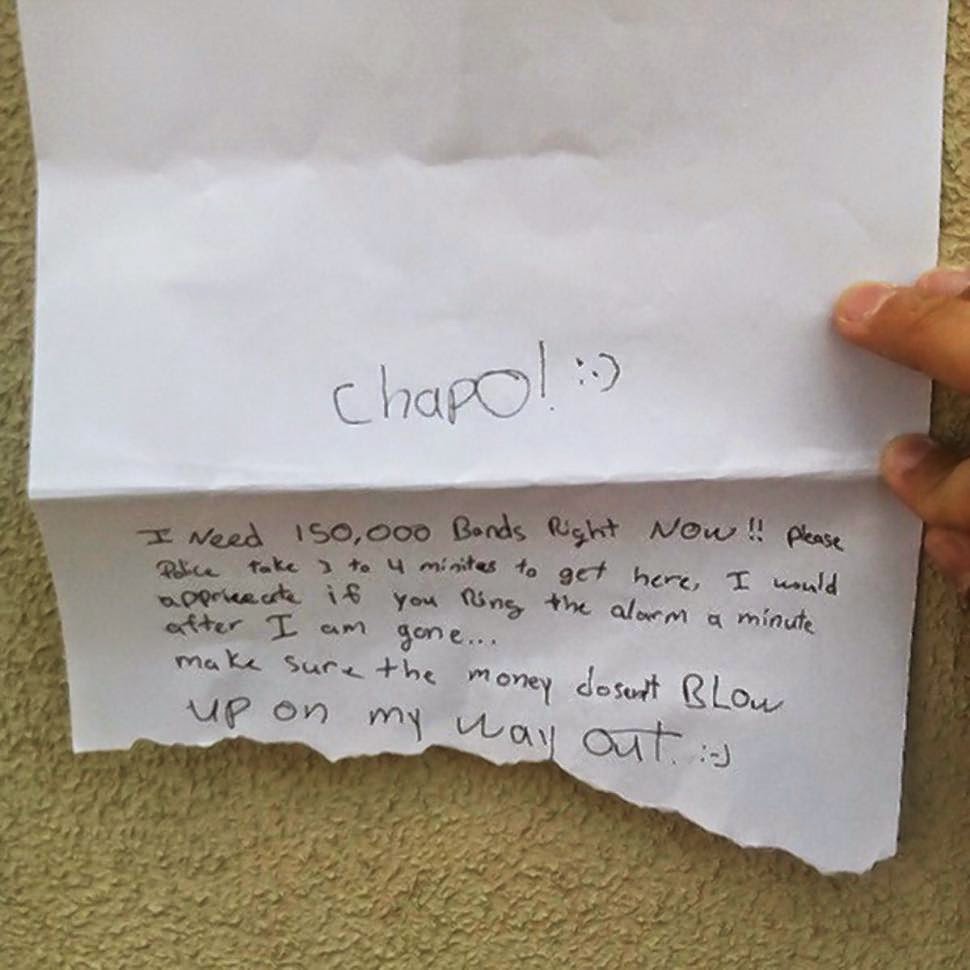 chapo! :-)
I Need 150,000 Bands Right Now!! please
Police take 3 to 4 minites to get here, I would
apprieceate if you Ring the alarm a minute
after I am gone...
make sure the money dosen't BLow
up on my way out. :-)